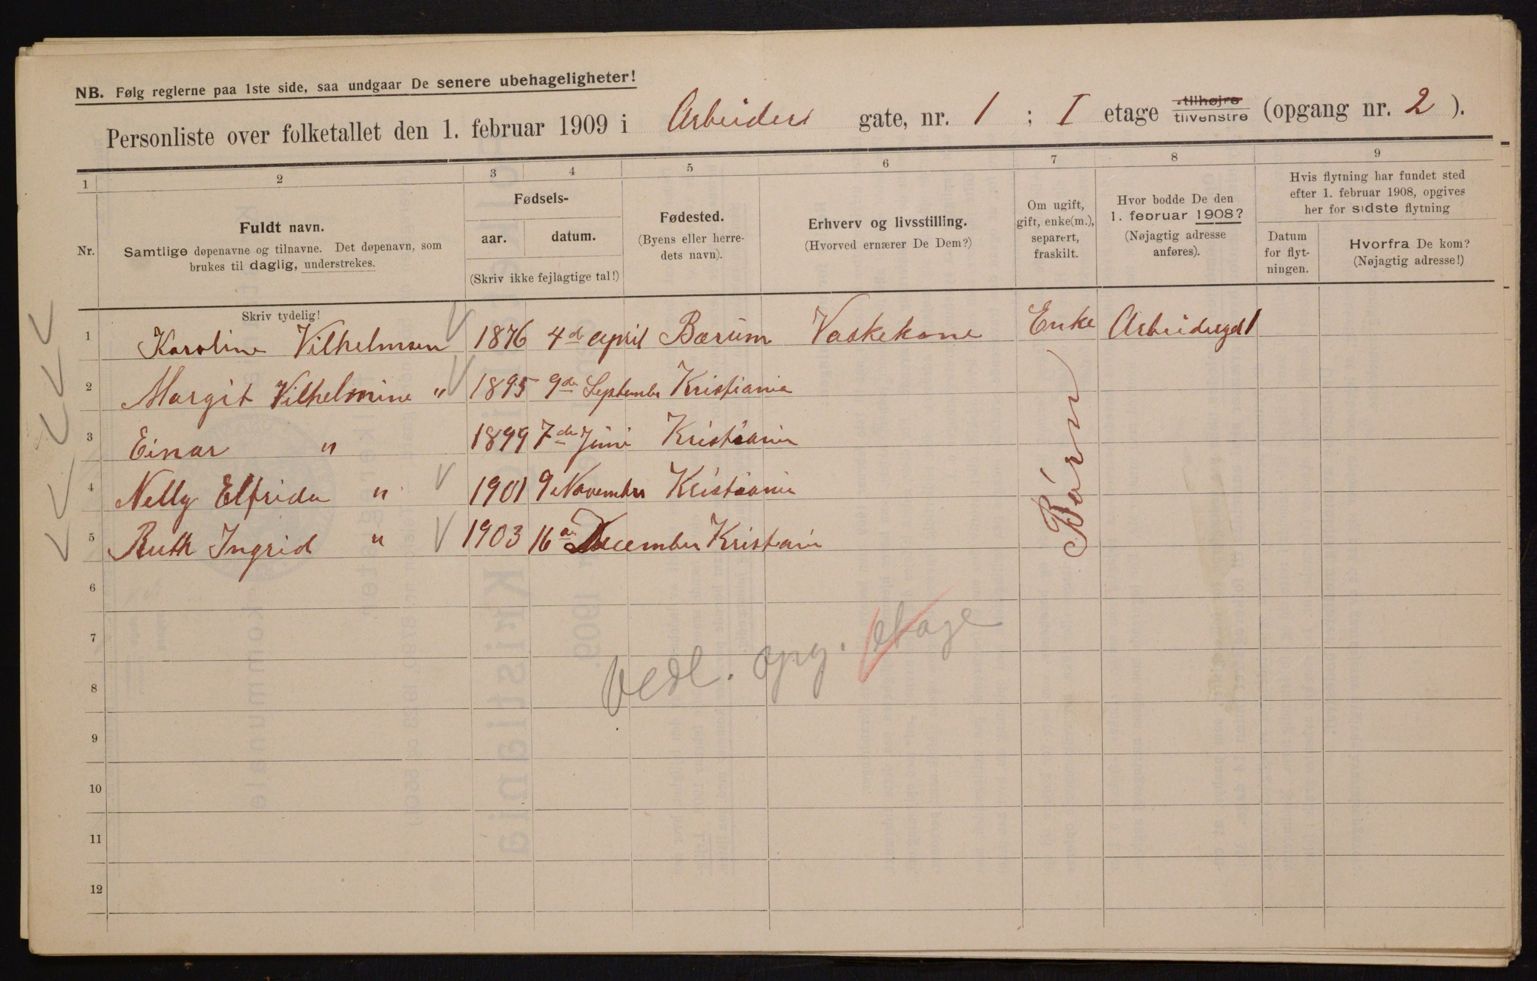 NB. Følg reglerne paa 1ste side, saa undgaar De senere ubehageligheter!
Personliste over folketallet den 1. februar 1909 i Arbeider gate, nr. 1 ; I etage tilhøjre tilvenstre (opgang nr. 2 ).
1 2 3 4 5 6 7 8 9
Nr.
Fuldt navn.
Samtlige døpenavne og tilnavne. Det døpenavn, som
brukes til daglig, understrekes.
Fødsels-
aar. datum.
(Skriv ikke fejlagtige tal!)
Fødested.
(Byens eller herre-
dets navn).
Erhverv og livsstilling.
(Hvorved ernærer De Dem?)
Om ugift,
gift, enke(m.),
separert,
fraskilt.
Hvor bodde De den
1. februar 1908?
(Nøjagtig adresse
anføres).
Hvis flytning har fundet sted
efter 1. februar 1908, opgives
her for sidste flytning
Datum
for flyt-
ningen.
Hvorfra De kom?
(Nøjagtig adresse!)
Skriv tydelig!
1 Karoline Vilhelmsen 1876 4de april Bærum Vaskekone Enke Arbeidergd 1
2 Margit Vilhelmine " 1895 9de September Kristiania
3 Einar " 1899 7de Juni Kristiania
4 Nelly Elfrida " 1901 9 November Kristiania
5 Ruth Ingrid " 1903 16de December Kristiania
Börn
6
7
8
9
10
11
12
Vedl. opg. etage